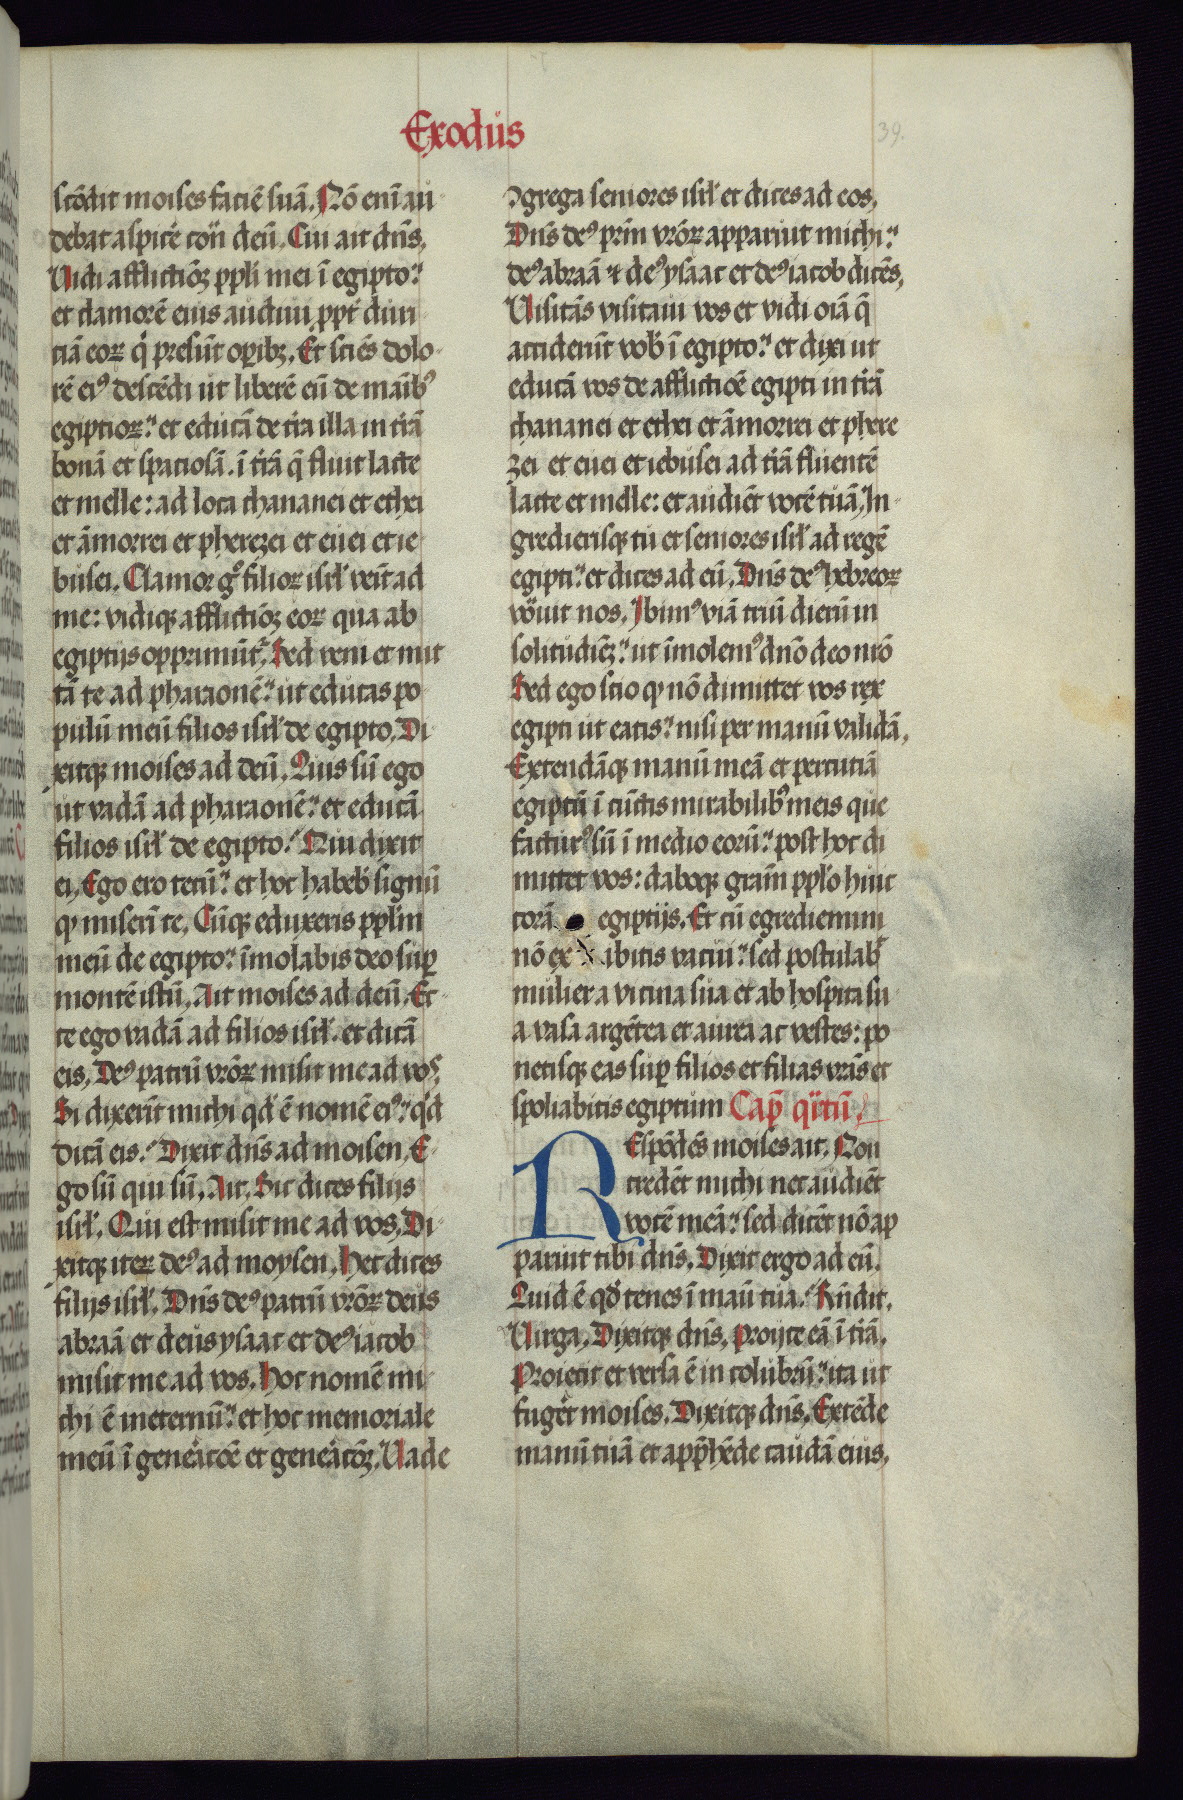 Exodus
39.
scōdit moises faciē suā. Nō enī au
debat aspic̄e cont̄ deū. Cui ait dn̄s.
Uidi afflictiōȝ ppl̄i mei ī egipto:
et clamorē eius audiui ꝓpt̄ duri
ciā eoꝝ q̄ presūt oꝑibꝫ. Et sciēs dolo
rē eiꝰ descēdi ut liberē eū de manibꝰ
egiptioꝝ: et educā de tr̄a illa in tr̄ā
bonā et spaciosā. ī tr̄ā q̄ fluit lacte
et melle: ad loca chananei et ethei
et āmorrei et pherezei et euei et ie
busei. Clamor gͦ filioꝝ isrl̄ venit ad
me: vidiqꝫ afflictiōȝ eoꝝ qua ab
egiptijs opprimūt᷑. Sed veni et mit
tā te ad pharaonē: ut educas po
pulū meū filios isrl̄ de egipto. Di
xitqꝫ moises ad deū. Quis sū ego
ut vadā ad pharaonē: et educā
filios isrl̄ de egipto. Qui dixit
ei. Ego ero tecū: et hoc habeb̄ signū
ꝙ miserī te. Cūqꝫ eduxeris ppl̄m
meū de egipto: īmolabis deo suꝑ
montē istū. Ait moises ad deū. Ec
ce ego vadā ad filios isrl̄. et dicā
eis. Deꝰ patrū vr̄oꝝ misit me ad vos.
Si dixerīt michi qd̄ ē nomē eiꝰ: qd̄
dicā eis. Dixit dn̄s ad moisen. E
go sū qui sū. Ait. Sic dices filijs
isrl̄. Qui est misit me ad vos. Di
xitqꝫ iteꝝ deꝰ ad moysen. Hec dices
filijs isrl̄. Dn̄s deꝰ patrū vr̄oꝝ deus
abraā et deus ysaac et deꝰ iacob
misit me ad vos. Hoc nomē mi
chi ē ineternū: et hoc memoriale
meū ī gener̄acōe et gener̄acōȝ. Uade
ↄgrega seniores isrl̄ et dices ad eos.
Dn̄s deꝰ prīn vr̄oꝝ apparuit michi:
deꝰ abraā ⁊ deꝰ ysaac et deꝰ iacob dicēs.
Uisitās visitaui vos et vidi oīa q̄
acciderūt vob̄ ī egipto: et dixi ut
educā vos de afflictiōē egipti in tr̄ā
chananei et ethei et āmorrei et phere
zei et euei et iebusei ad tr̄ā fluentē
lacte et melle: et audiēt vocē tuā. In
gredierisqꝫ tu et seniores isrl̄ ad regē
egipti: et dices ad eū. Dn̄s deꝰ hebreoꝝ
vocauit nos. Ibimꝰ viā triū dierū in
solitudiēȝ: ut īmolemꝰ dn̄o deo nr̄o
Sed ego scio ꝙ nō dimittet vos rex
egipti ut eatis: nisi per manū validā.
Extendāqꝫ manū meā et percutiā
egiptū ī cūctis mirabilibꝰ meis que
facturꝰ sū ī medio eorū: post hoc di
mittet vos: daboqꝫ grām ppl̄o huic
corā egiptijs. Et cū egrediemini
nō exibitis vacui: sed postulab᷑
mulier a vicina sua et ab hospita su
a vasa argētea et aurea ac vestes: po
netisqꝫ eas suꝑ filios et filias vr̄as et
spoliabitis egiptum Cap̄ q̄rtū
REspōdēs moises ait. Non
credēt michi nec audiēt
vocē meā: sed dicēt nō ap
paruit tibi dn̄s. Dixit ergo ad eū.
Quid ē qd̄ tenes ī manū tua. Rn̄dit.
Uirga. Dixitqꝫ dn̄s. Proijce eā ī tr̄ā.
Proiecit et versa ē in colubrū: ita ut
fuḡet moises. Dixitqꝫ dn̄s. Extēde
manū tuā et app̄hēde caudā eius.